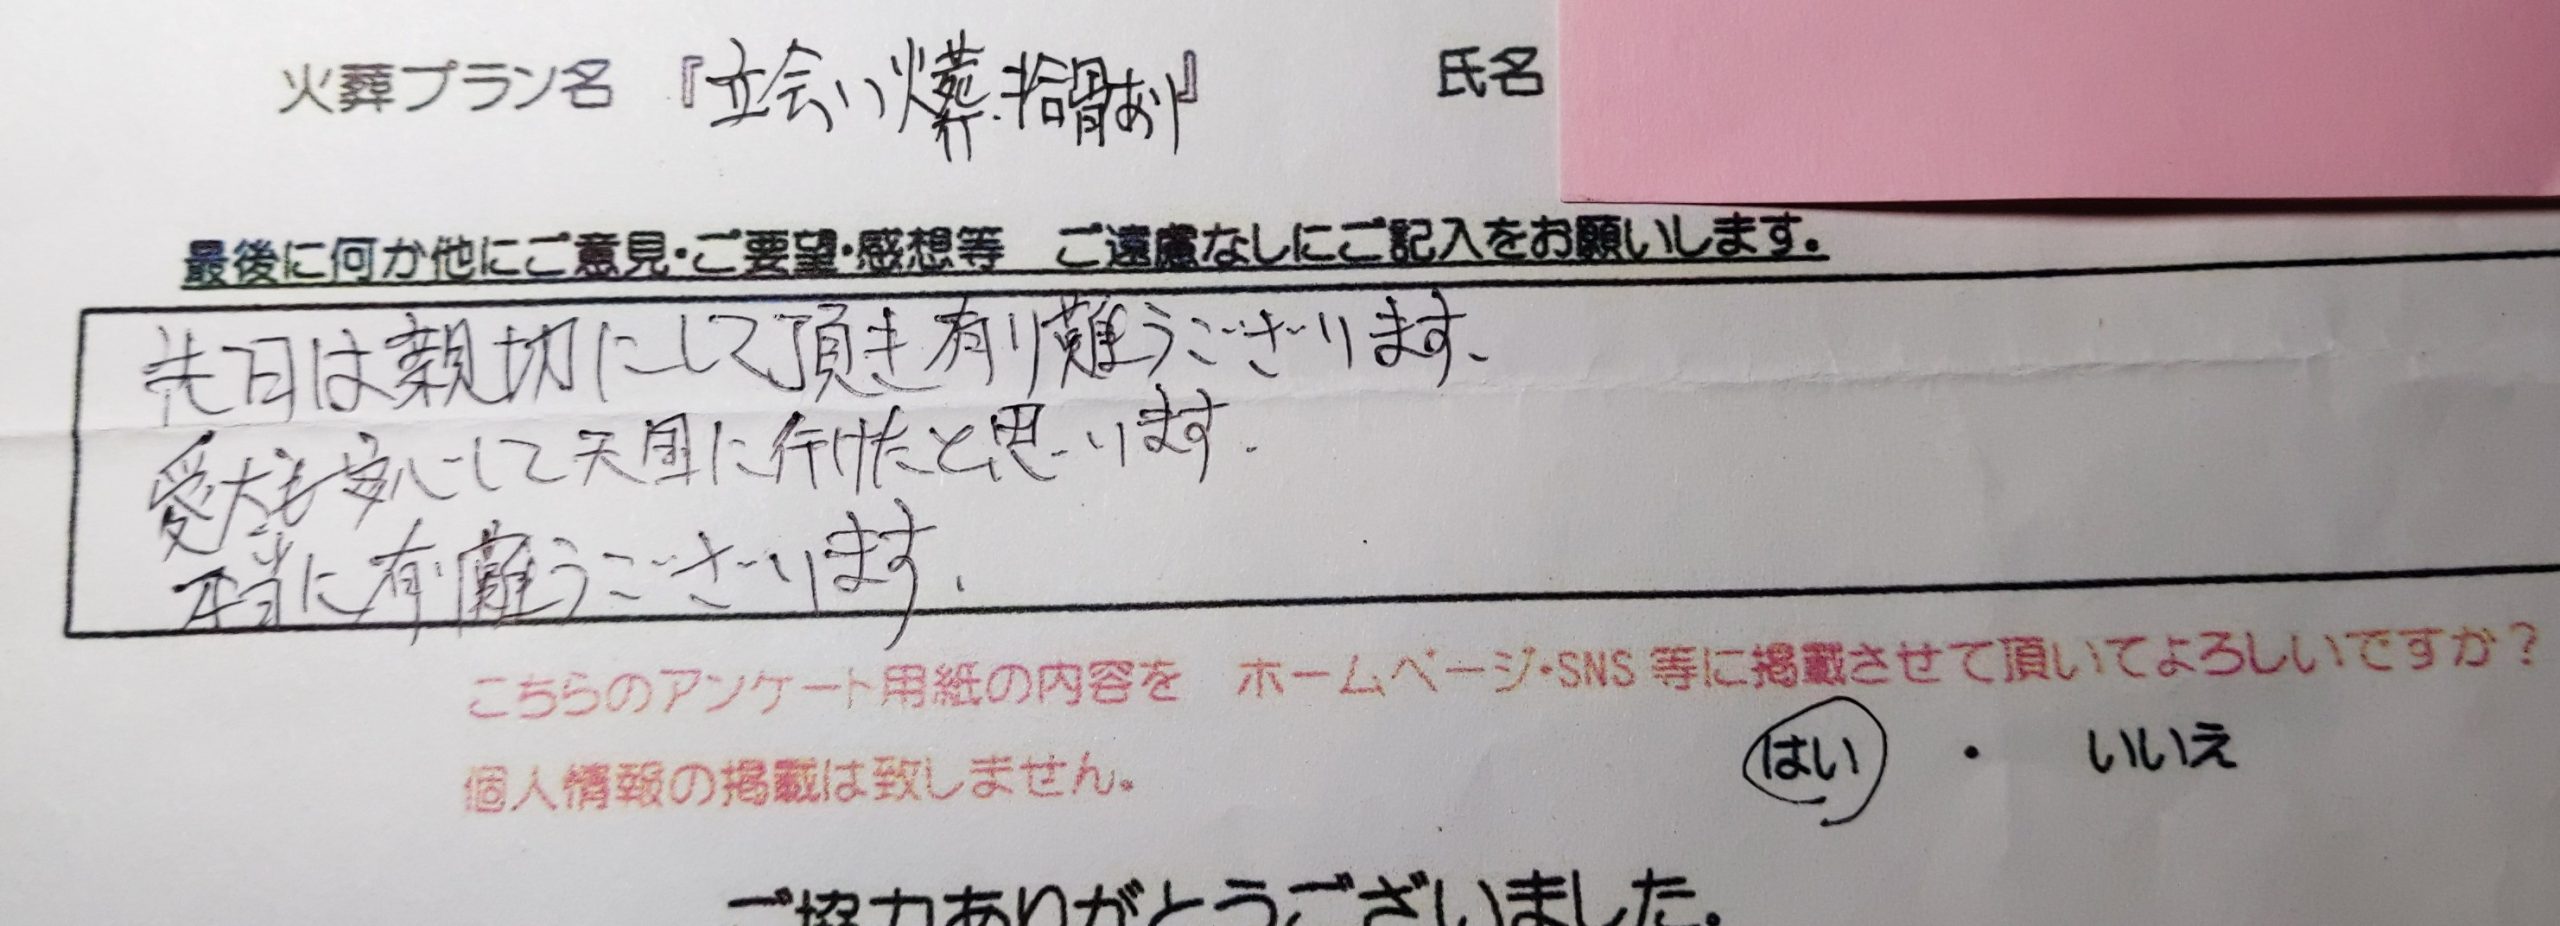 火葬プラン名 『立会い火葬・拾骨あり』 氏名
最後に何か他にご意見・ご要望・感想等 ご遠慮なしにご記入をお願いします。
先日は親切にして頂き有り難うございます、
愛犬も安心して天国に行けたと思います.
本当に有り難うございます.
こちらのアンケート用紙の内容を ホームページ・SNS 等に掲載させて頂いてよろしいですか？
はい ・ いいえ
個人情報の掲載は致しません。
ご協力ありがとうございました。